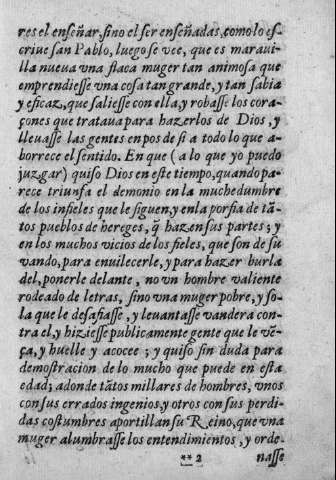 res el enseñar, sino el ser enseñadas, como lo es-
criue san Pablo, luego se vee, que es maraui-
lla nueua vna flaca muger tan animosa que
emprendiesse vna cosa tan grande, y tan sabia
y eficaz, que saliesse con ella, y robasse los cora-
çones que trataua para hazerlos de Dios, y
lleuasse las gentes en pos de si a todo lo que a-
borrece el sentido. En que (a lo que yo puedo
juzgar) quiso Dios en este tiempo, quando pa-
rece triunfa el demonio en la muchedumbre
de los infieles que le siguen, y en la porfia de tã-
tos pueblos de hereges, q̃ hazen sus partes; y
en los muchos vicios de los fieles, que son de su
vando, para enuilecerle, y para hazer burla
del, ponerle delante, no vn hombre valiente
rodeado de letras, sino vna muger pobre, y so-
la que le desafiasse, y leuantasse vandera con-
tra el, y hiziesse publicamente gente que le vẽ-
ça, y huelle y acocee; y quiso sin duda para
demostracion de lo mucho que puede en esta
edad; adonde tãtos millares de hombres, vnos
con sus errados ingenios, y otros con sus perdi-
das costumbres aportillan su Reino, que vna
muger alumbrasse los entendimientos, y orde-
** 2 nasse